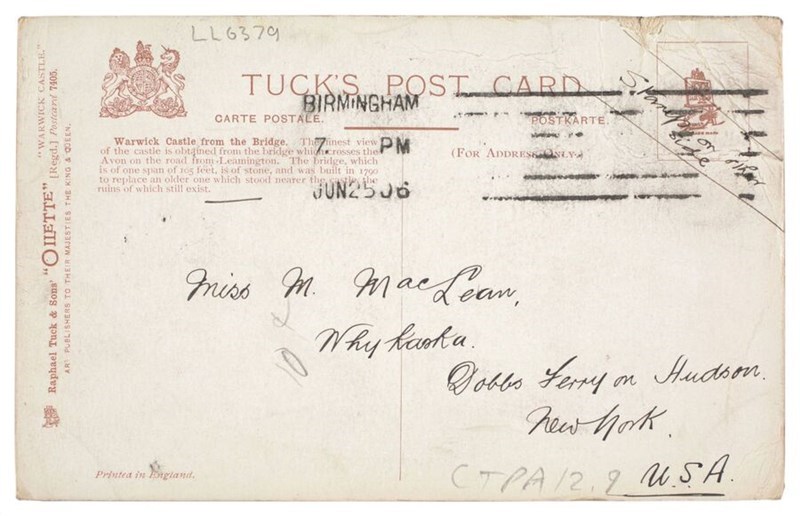 LLG379
TUCK'S POST CARD
CARTE POSTALE.
POSTKARTE.
BIRMINGHAM
7 PM
JUN 25 06
Stamp on other side
Warwick Castle from the Bridge. The finest view
of the castle is obtained from the bridge which crosses the
Avon on the road from Leamington. The bridge, which
is of one span of 105 feet, is of stone, and was built in 1790
to replace an older one which stood nearer the castle, the
ruins of which still exist.
(For Address Only.)
"WARWICK CASTLE."
Raphael Tuck & Sons' "OILETTE" [Regd.] Postcard 7405.
ART PUBLISHERS TO THEIR MAJESTIES THE KING & QUEEN.
Miss M. MacLean,
Whykaska.
Dobbs Ferry on Hudson.
New York.
U.S.A.
10
CTPA12.9
Printed in England.